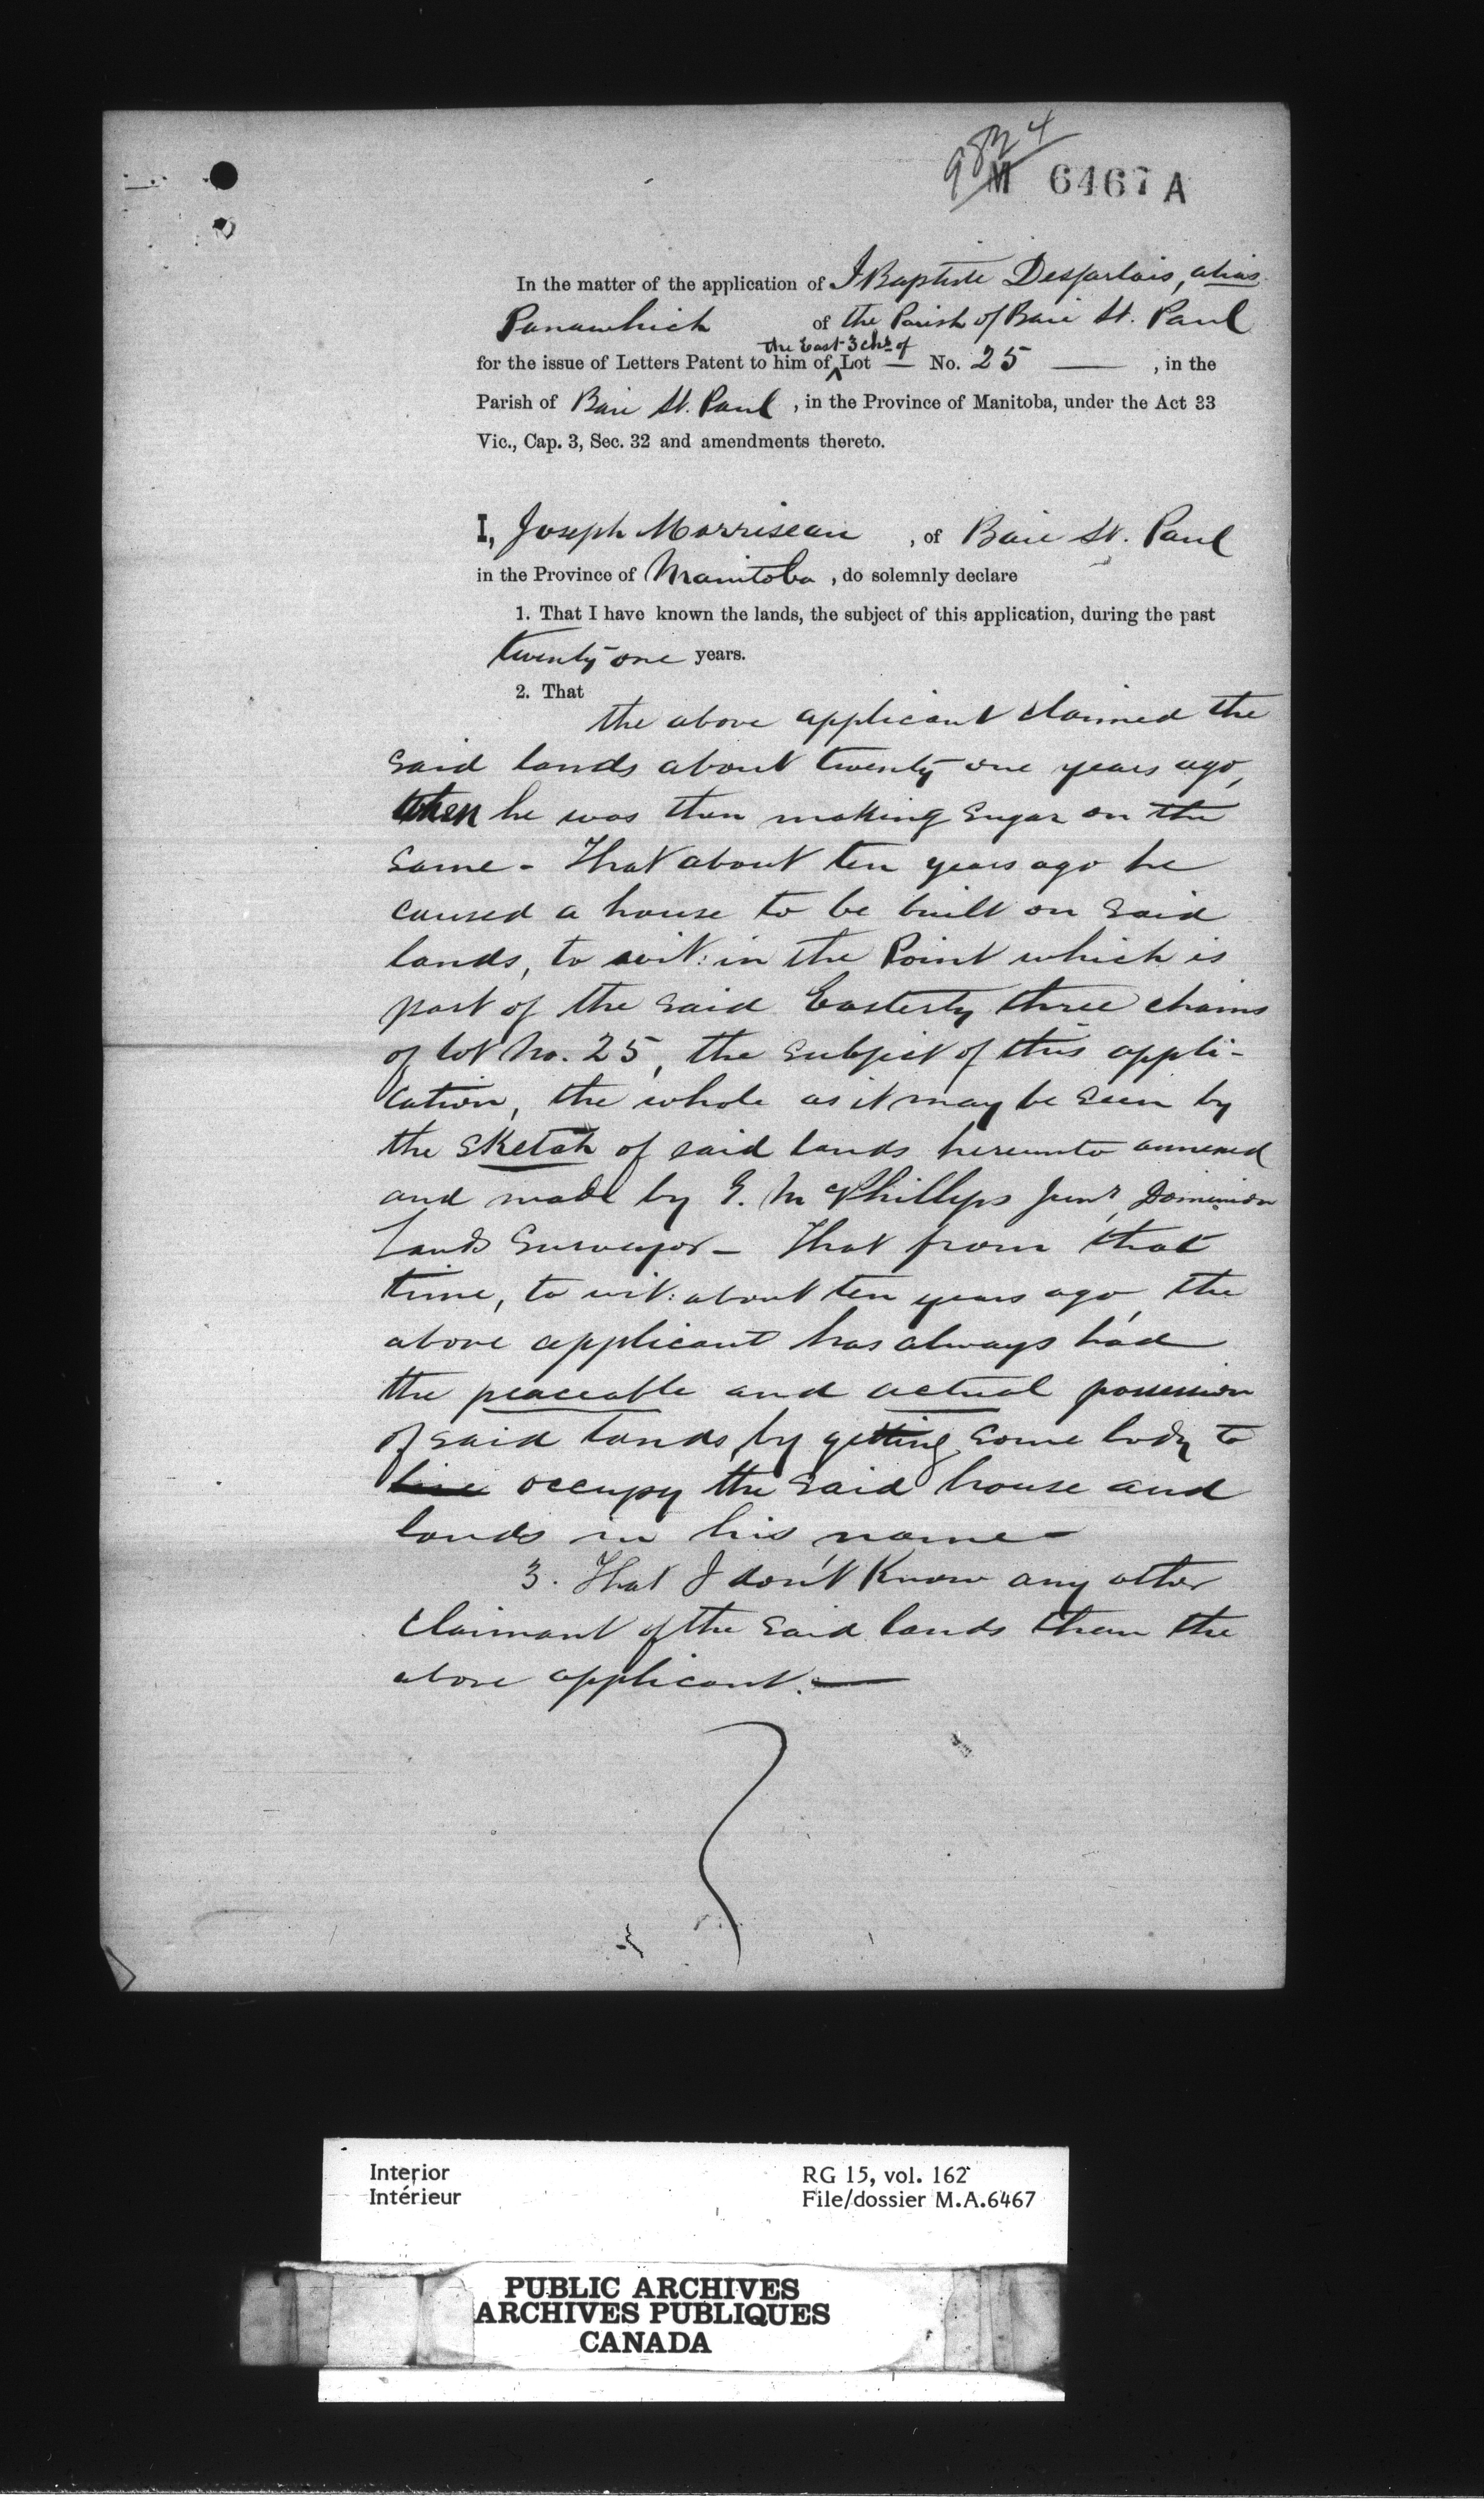 9824
M 6467 A
In the matter of the application of J Baptiste Desjarlais, alias
Panawhich of the Parish of Baie St. Paul
the East 3 chs. of
for the issue of Letters Patent to him of Lot — No. 25 — , in the
Parish of Baie St. Paul , in the Province of Manitoba, under the Act 33
Vic., Cap. 3, Sec. 32 and amendments thereto.
I, Joseph Morriseau , of Baie St. Paul
in the Province of Manitoba , do solemnly declare
1. That I have known the lands, the subject of this application, during the past
twenty-one years.
2. That
the above applicant claimed the
said lands about twenty one years ago,
when he was then making sugar on the
same - That about ten years ago he
caused a house to be built on said
lands, to wit: in the Point which is
part of the said Easterly three chains
of lot No. 25, the subject of this appli-
cation, the whole as it may be seen by
the sketch of said lands hereunto annexed
and made by G. McPhillips Junr, Dominion
Lands Surveyor - That from that
time, to wit: about ten years ago, the
above applicant has always had
the peaceable and actual possession
of said lands by getting some body to
live occupy the said house and
lands in his name -
3. That I don't Know any other
claimant of the said lands than the
above applicant. —
Interior
Intérieur
RG 15, vol. 162
File/dossier M.A.6467
PUBLIC ARCHIVES
ARCHIVES PUBLIQUES
CANADA